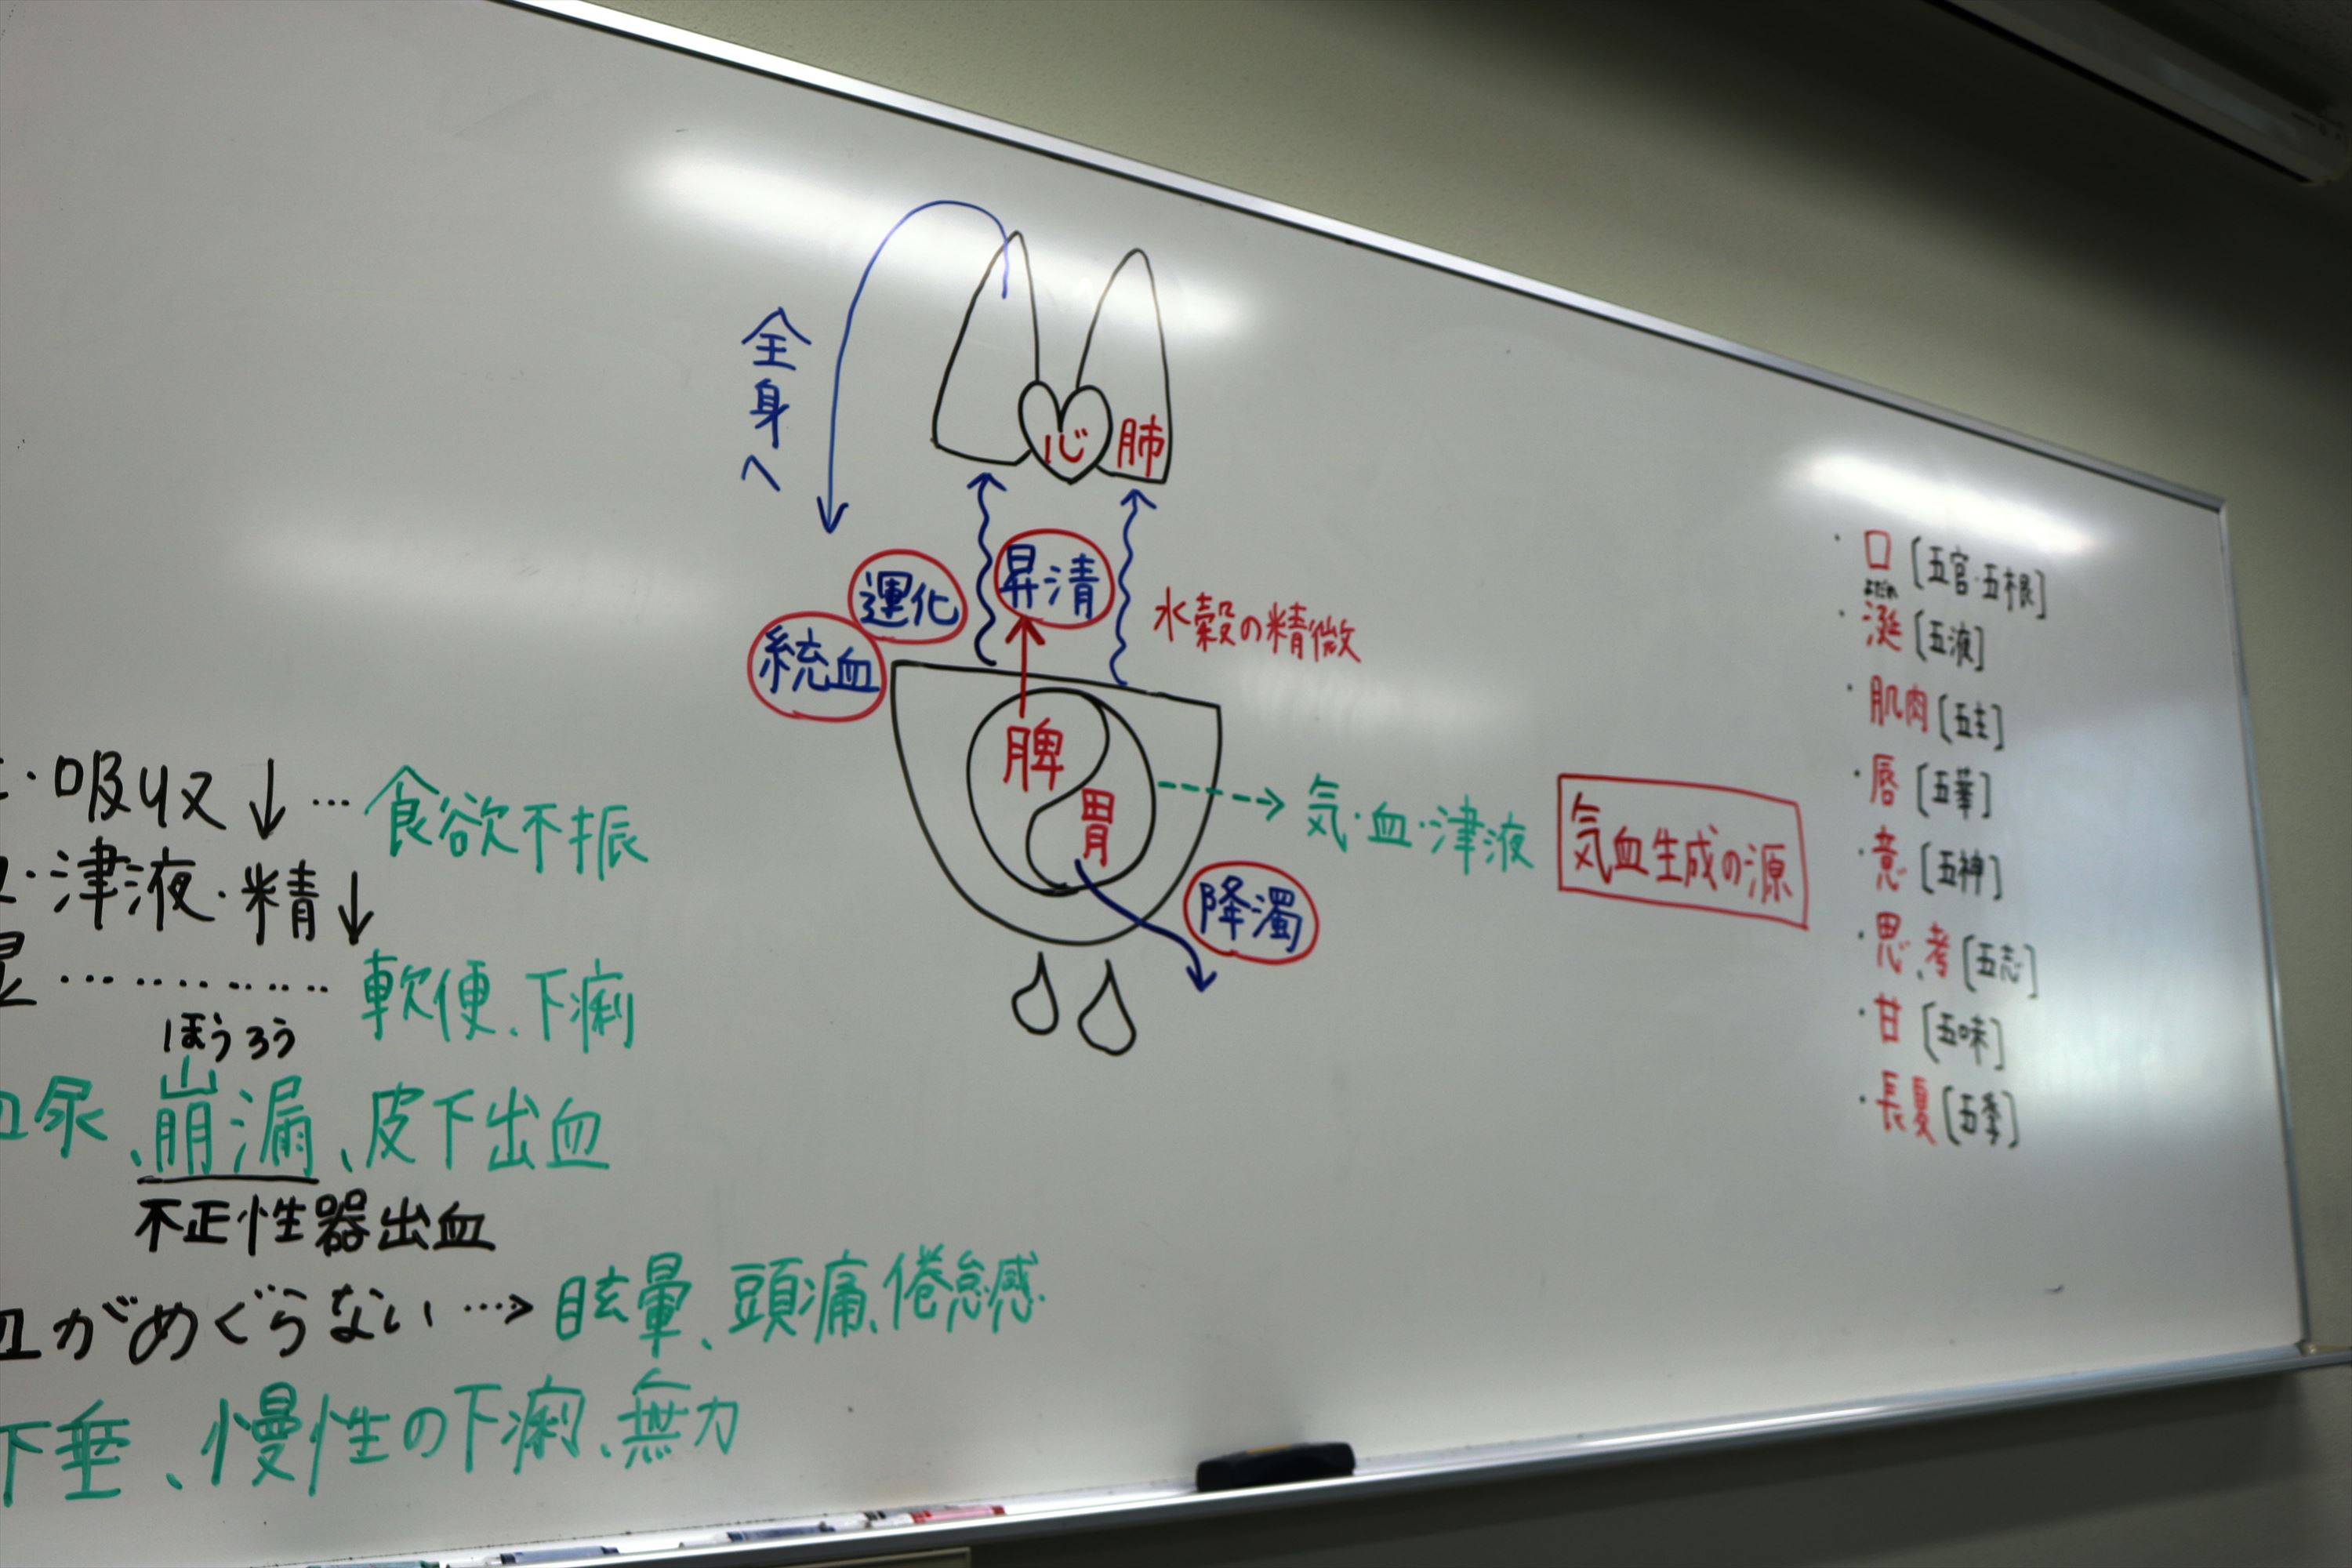 全身へ
心
肺
昇清
運化
統血
水穀の精微
脾
胃
気・血・津液
気血生成の源
降濁
・吸収↓…食欲不振
・津液・精↓
…………軟便、下痢
ほうろう
尿、崩漏、皮下出血
不正性器出血
血がめぐらない…→眩暈、頭痛、倦怠感
下垂、慢性の下痢、無力
・口[五官・五根]
よだれ
・涎[五液]
・肌肉[五主]
・唇[五華]
・意[五神]
・思、考[五志]
・甘[五味]
・長夏[五季]